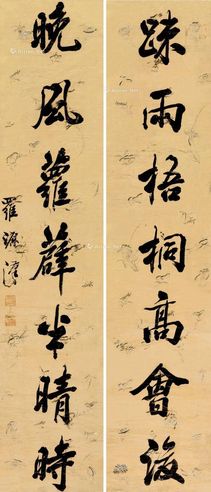 踈雨梧桐高會後
曉風蘿薜半晴時
羅源漢